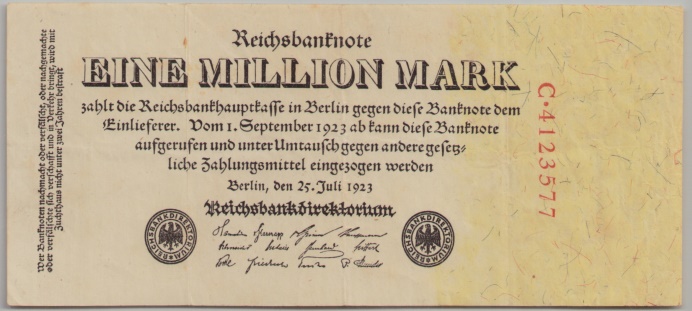 Reichsbanknote
EINE MILLION MARK
zahlt die Reichsbankhauptkasse in Berlin gegen diese Banknote dem
Einlieferer. Vom 1. September 1923 ab kann diese Banknote
aufgerufen und unter Umtausch gegen andere gesetz-
liche Zahlungsmittel eingezogen werden
Berlin, den 25. Juli 1923
Reichsbankdirektorium
REICHSBANKDIREKTORIUM
REICHSBANKDIREKTORIUM
Wer Banknoten nachmacht oder verfälscht, oder nachgemachte
oder verfälschte sich verschafft und in Verkehr bringt, wird mit
Zuchthaus nicht unter zwei Jahren bestraft
C·4123577